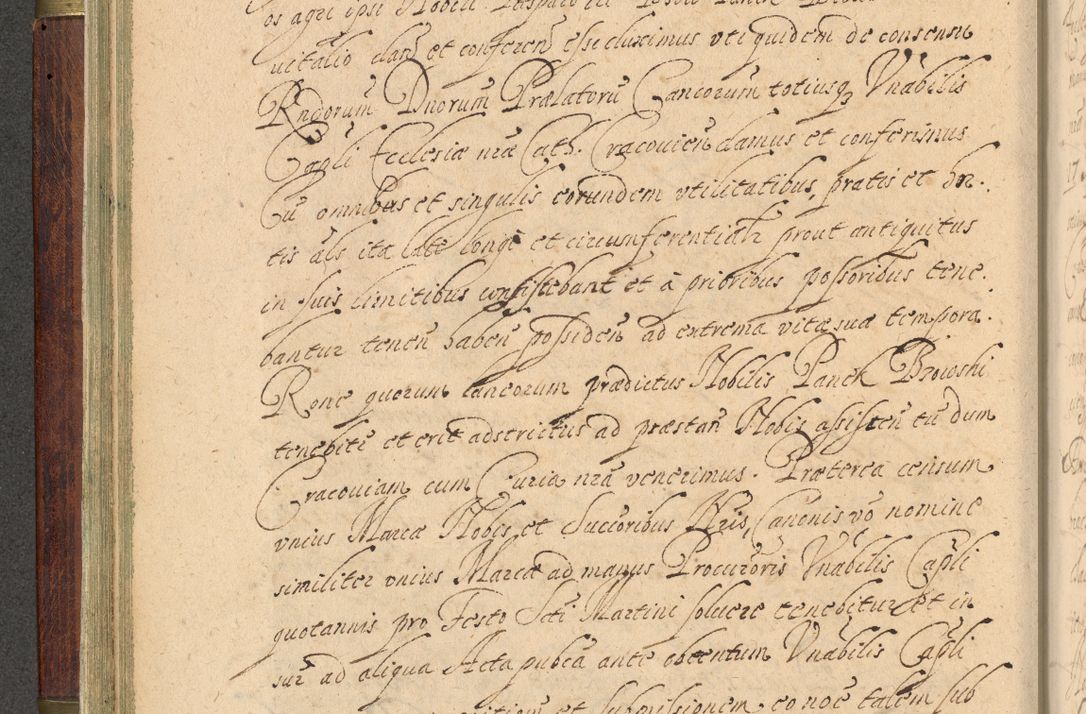 os agri ipsi Nobili
uitalio dañ et confereñ esse duximus vti quidem de consensu
Rndorum Dnorum Prælatorũ Cancorum totiusq3 Vnabilis
Capli Ecclesiæ nræ Cath. Cracouień damus et conferimus
Cũ omnibus et singulis eorundem vtilitatibus, pratis et hor.
tis als ita late longe et circumferentialr prout antiquitus
in suis limitibus consistebant et à prioribus possoribus tene.
bantur teneñ habeñ possideñ ad extrema vitæ suæ tempora.
Rone quorum lancorum prædictus Nobilis Panek Browski
tenebitr et erit adstrictus ad præstañ Nobis assisteñ tũ dum
Cracouiam cum Curia nra venerimus. Præterea censum
vnius Marcæ Nobis et Succoribus Nris, Canonis vo nomine
similiter vnius Marcæ ad manus Procuroris Vnabilis Capli
quotannis pro Festo Scti Martini soluere tenebitur et in
sup ad aliqua Acta pubca ante obtentum Vnabilis Capli
et submissionem eo noe talem sub